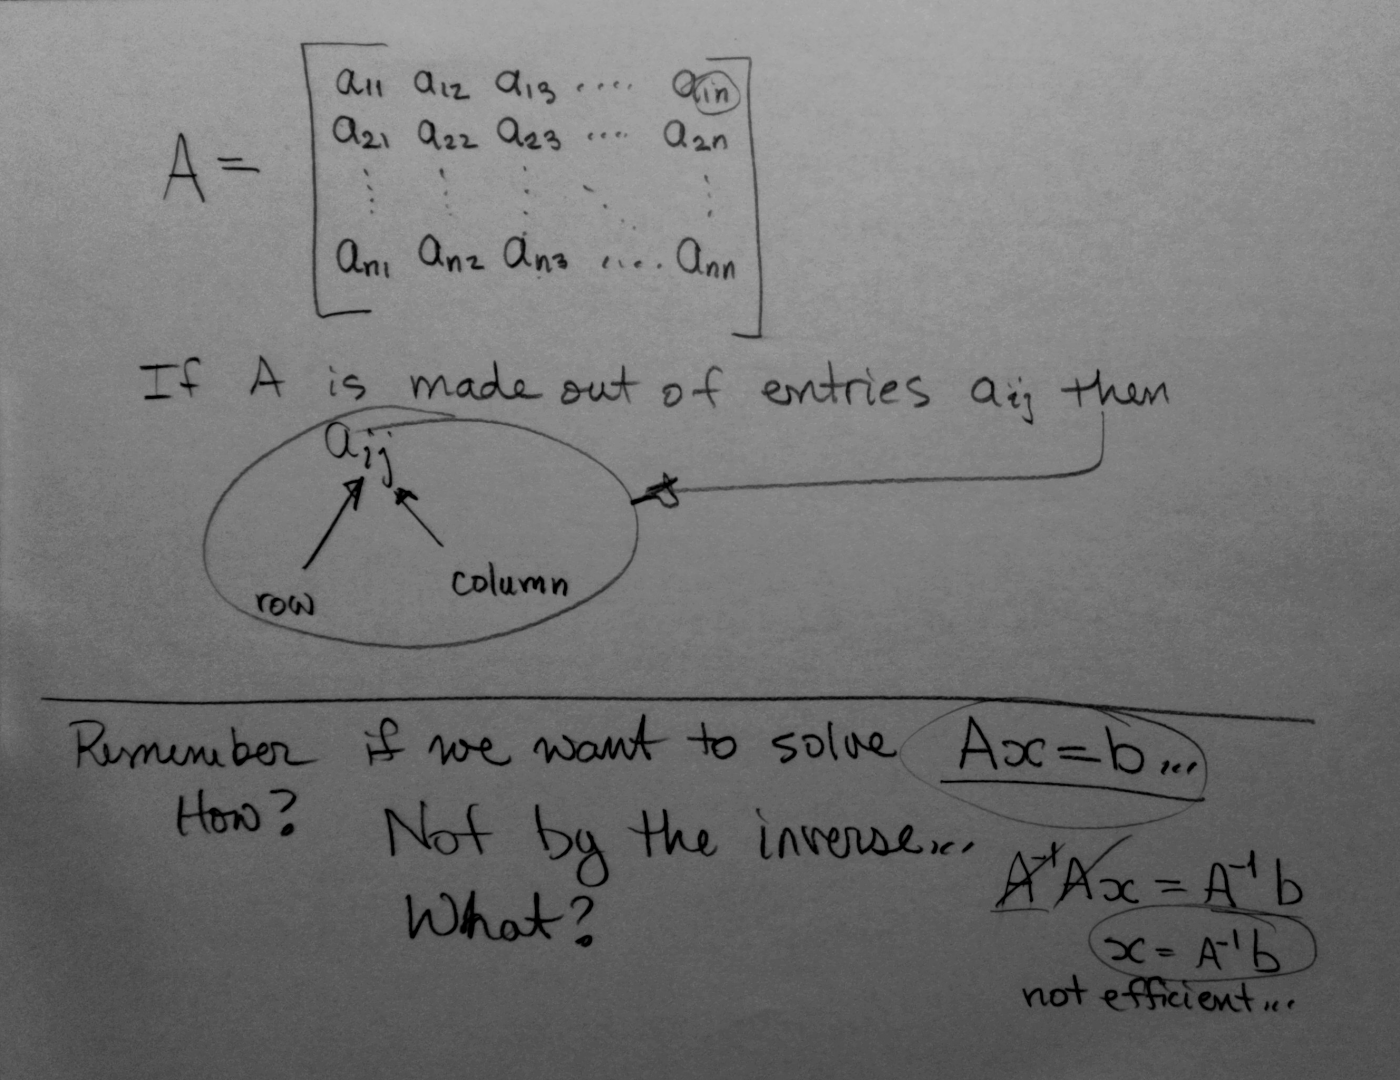 A = [ a11 a12 a13 .... a1n
a21 a22 a23 .... a2n
an1 an2 an3 .... ann ]
If A is made out of entries aij then
aij
row column
Remember if we want to solve Ax=b...
How? Not by the inverse...
A⁻¹Ax = A⁻¹b
What?
x = A⁻¹b
not efficient...